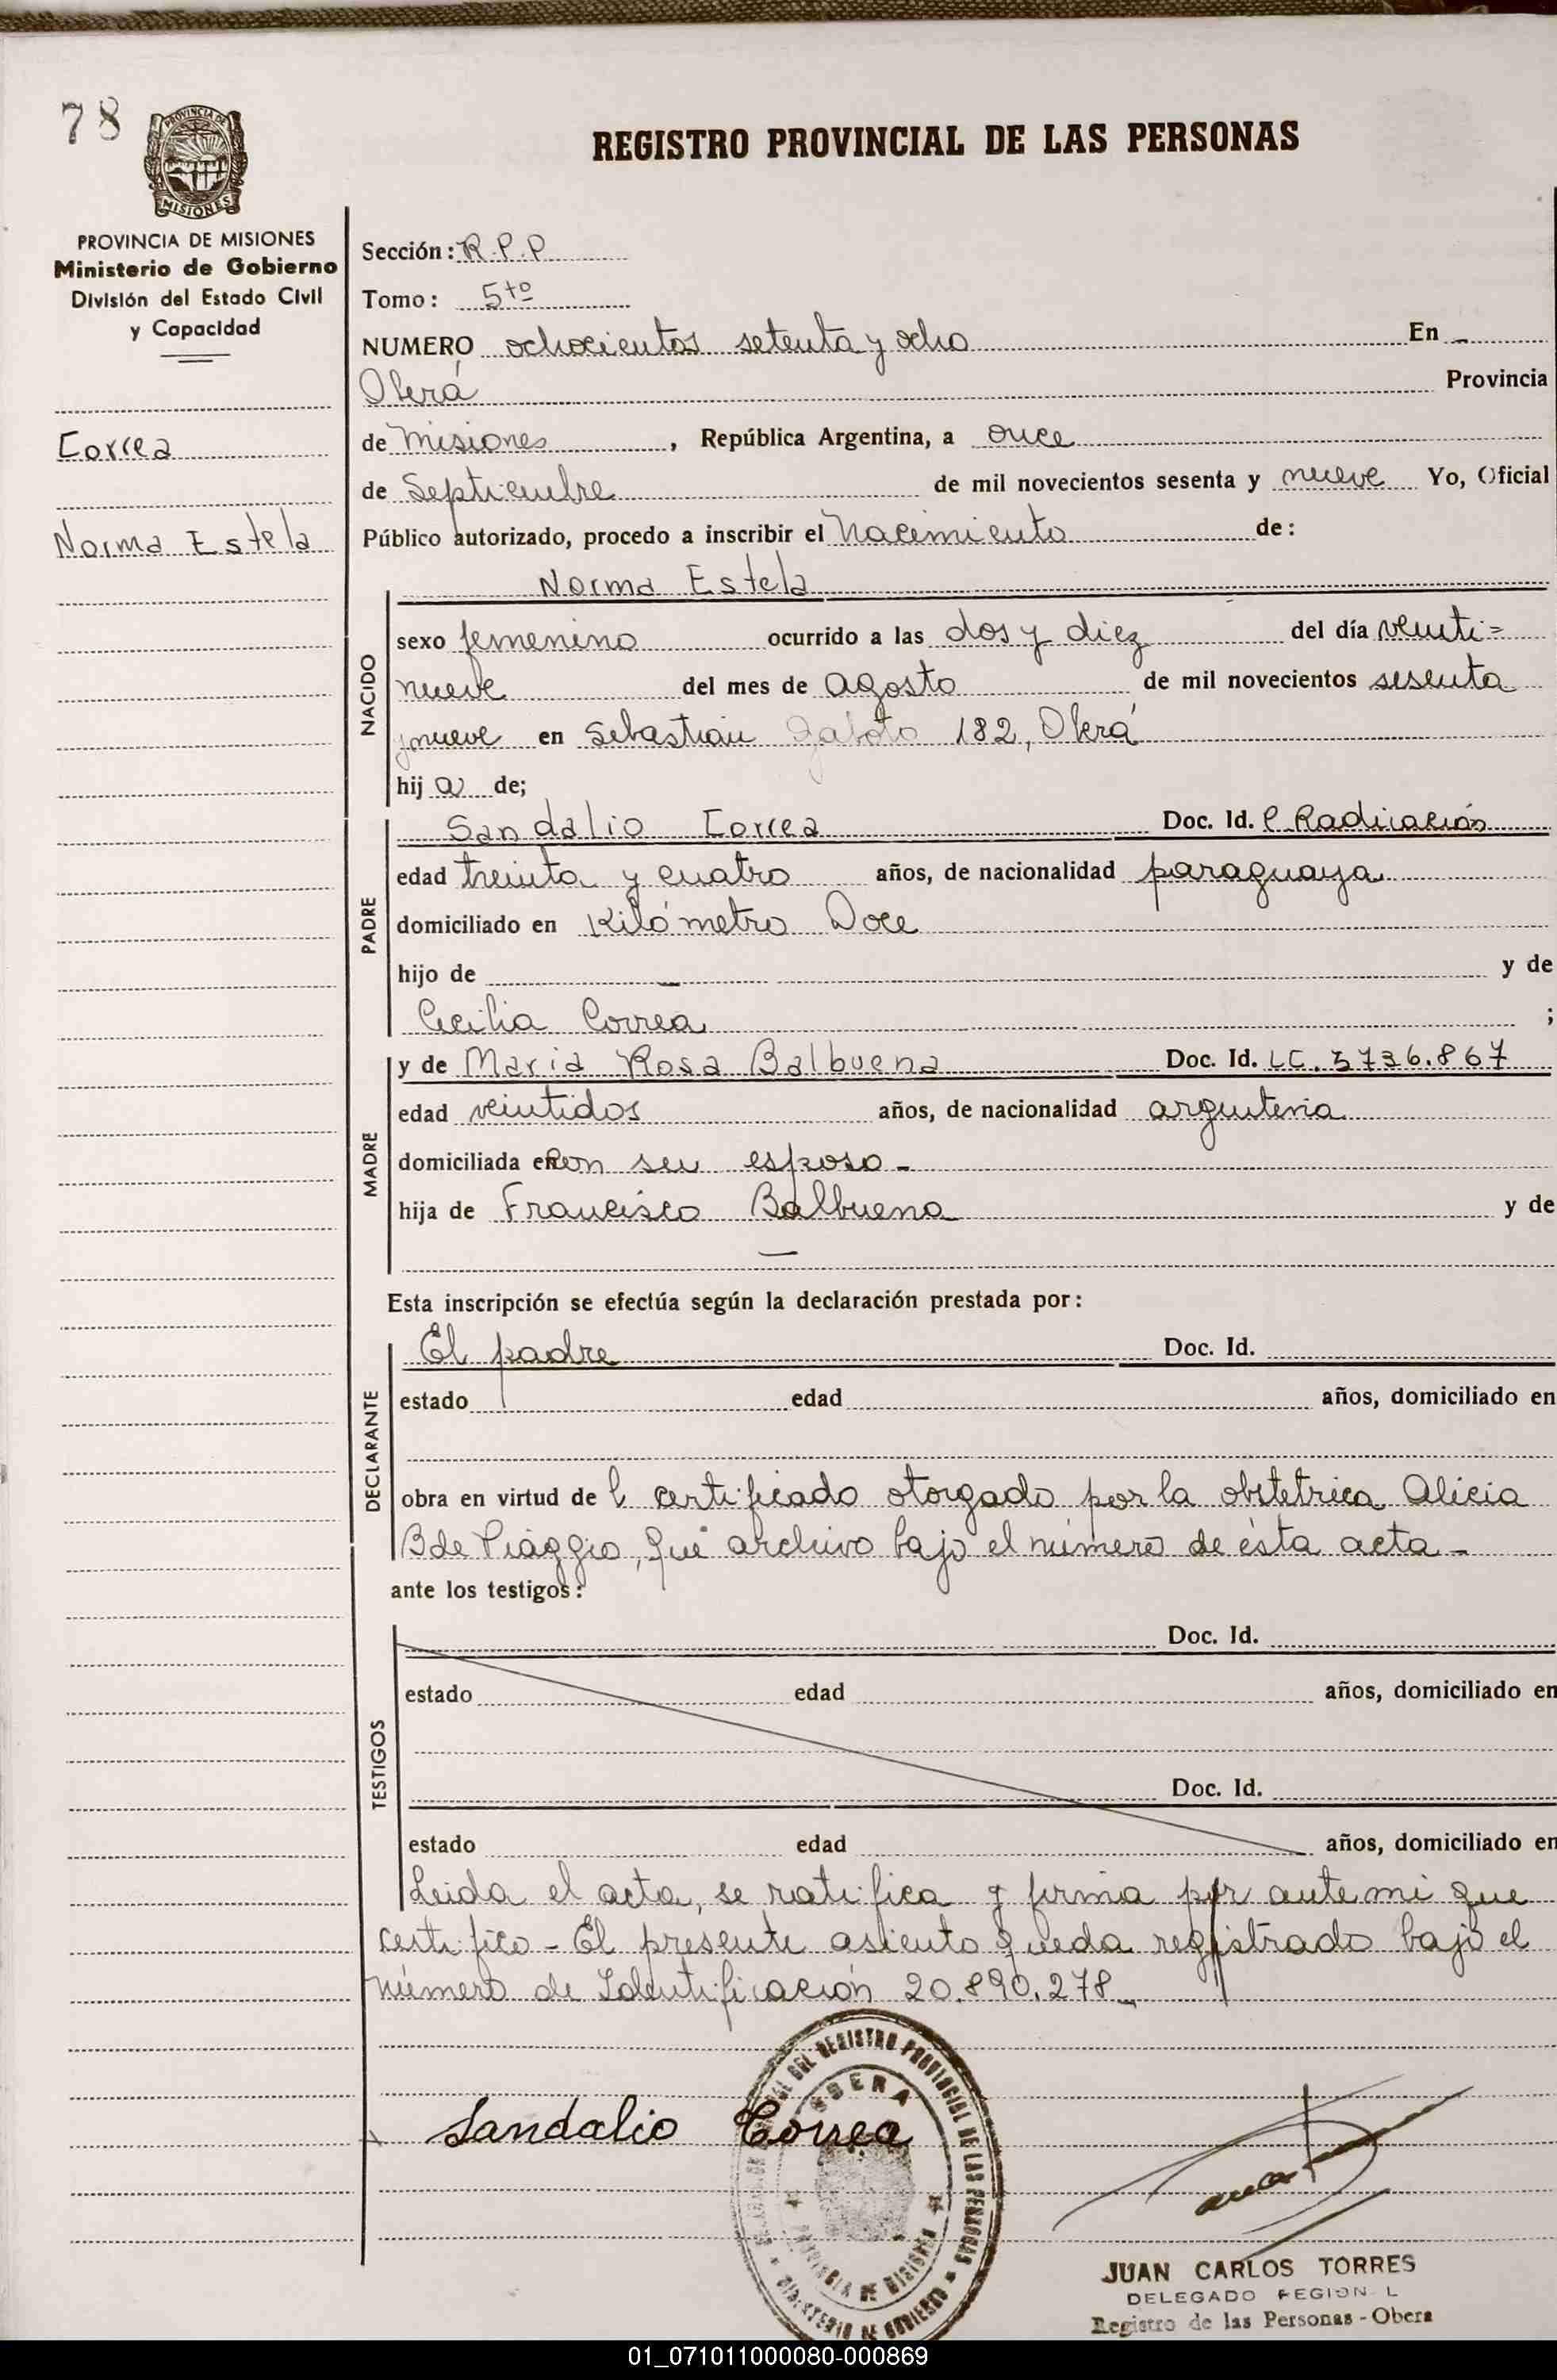 78
PROVINCIA DE
MISIONES
REGISTRO PROVINCIAL DE LAS PERSONAS
PROVINCIA DE MISIONES
Ministerio de Gobierno
División del Estado Civil
y Capacidad
Correa
Norma Estela
Sección: R.P.P
Tomo: 5to
NUMERO ochocientos setenta y ocho En
Oberá Provincia
de Misiones, República Argentina, a once
de Septiembre de mil novecientos sesenta y nueve Yo, Oficial
Público autorizado, procedo a inscribir el Nacimiento de:
NACIDO
Norma Estela
sexo femenino ocurrido a las dos y diez del día veinti=
nueve del mes de agosto de mil novecientos sesenta
y nueve en Sebastián Gaboto 182, Oberá
hija de;
PADRE
Sandalio Correa Doc. Id. C. Radicación
edad treinta y cuatro años, de nacionalidad paraguaya
domiciliado en Kilómetro Doce
hijo de — y de
Cecilia Correa ;
MADRE
y de Maria Rosa Balbuena Doc. Id. LC. 5736.867
edad veintidos años, de nacionalidad argentina
domiciliada en con su esposo -
hija de Francisco Balbuena y de
—
Esta inscripción se efectúa según la declaración prestada por:
DECLARANTE
El padre Doc. Id.
estado edad años, domiciliado en
obra en virtud del certificado otorgado por la obstetrica Alicia
B de Piaggio, que archivo bajo el número de ésta acta -
ante los testigos:
TESTIGOS
Doc. Id.
estado edad años, domiciliado en
Doc. Id.
estado edad años, domiciliado en
Leida el acta, se ratifica y firma por ante mi que
certifico - El presente asiento queda registrado bajo el
número de Identificación 20.890.278 -
Sandalio Correa
OBERA
DEL REGISTRO PROVINCIAL DE LAS PERSONAS
PROVINCIA DE MISIONES
MINISTERIO DE GOBIERNO
JUAN CARLOS TORRES
DELEGADO REGION L
Registro de las Personas - Obera
01_071011000080-000869